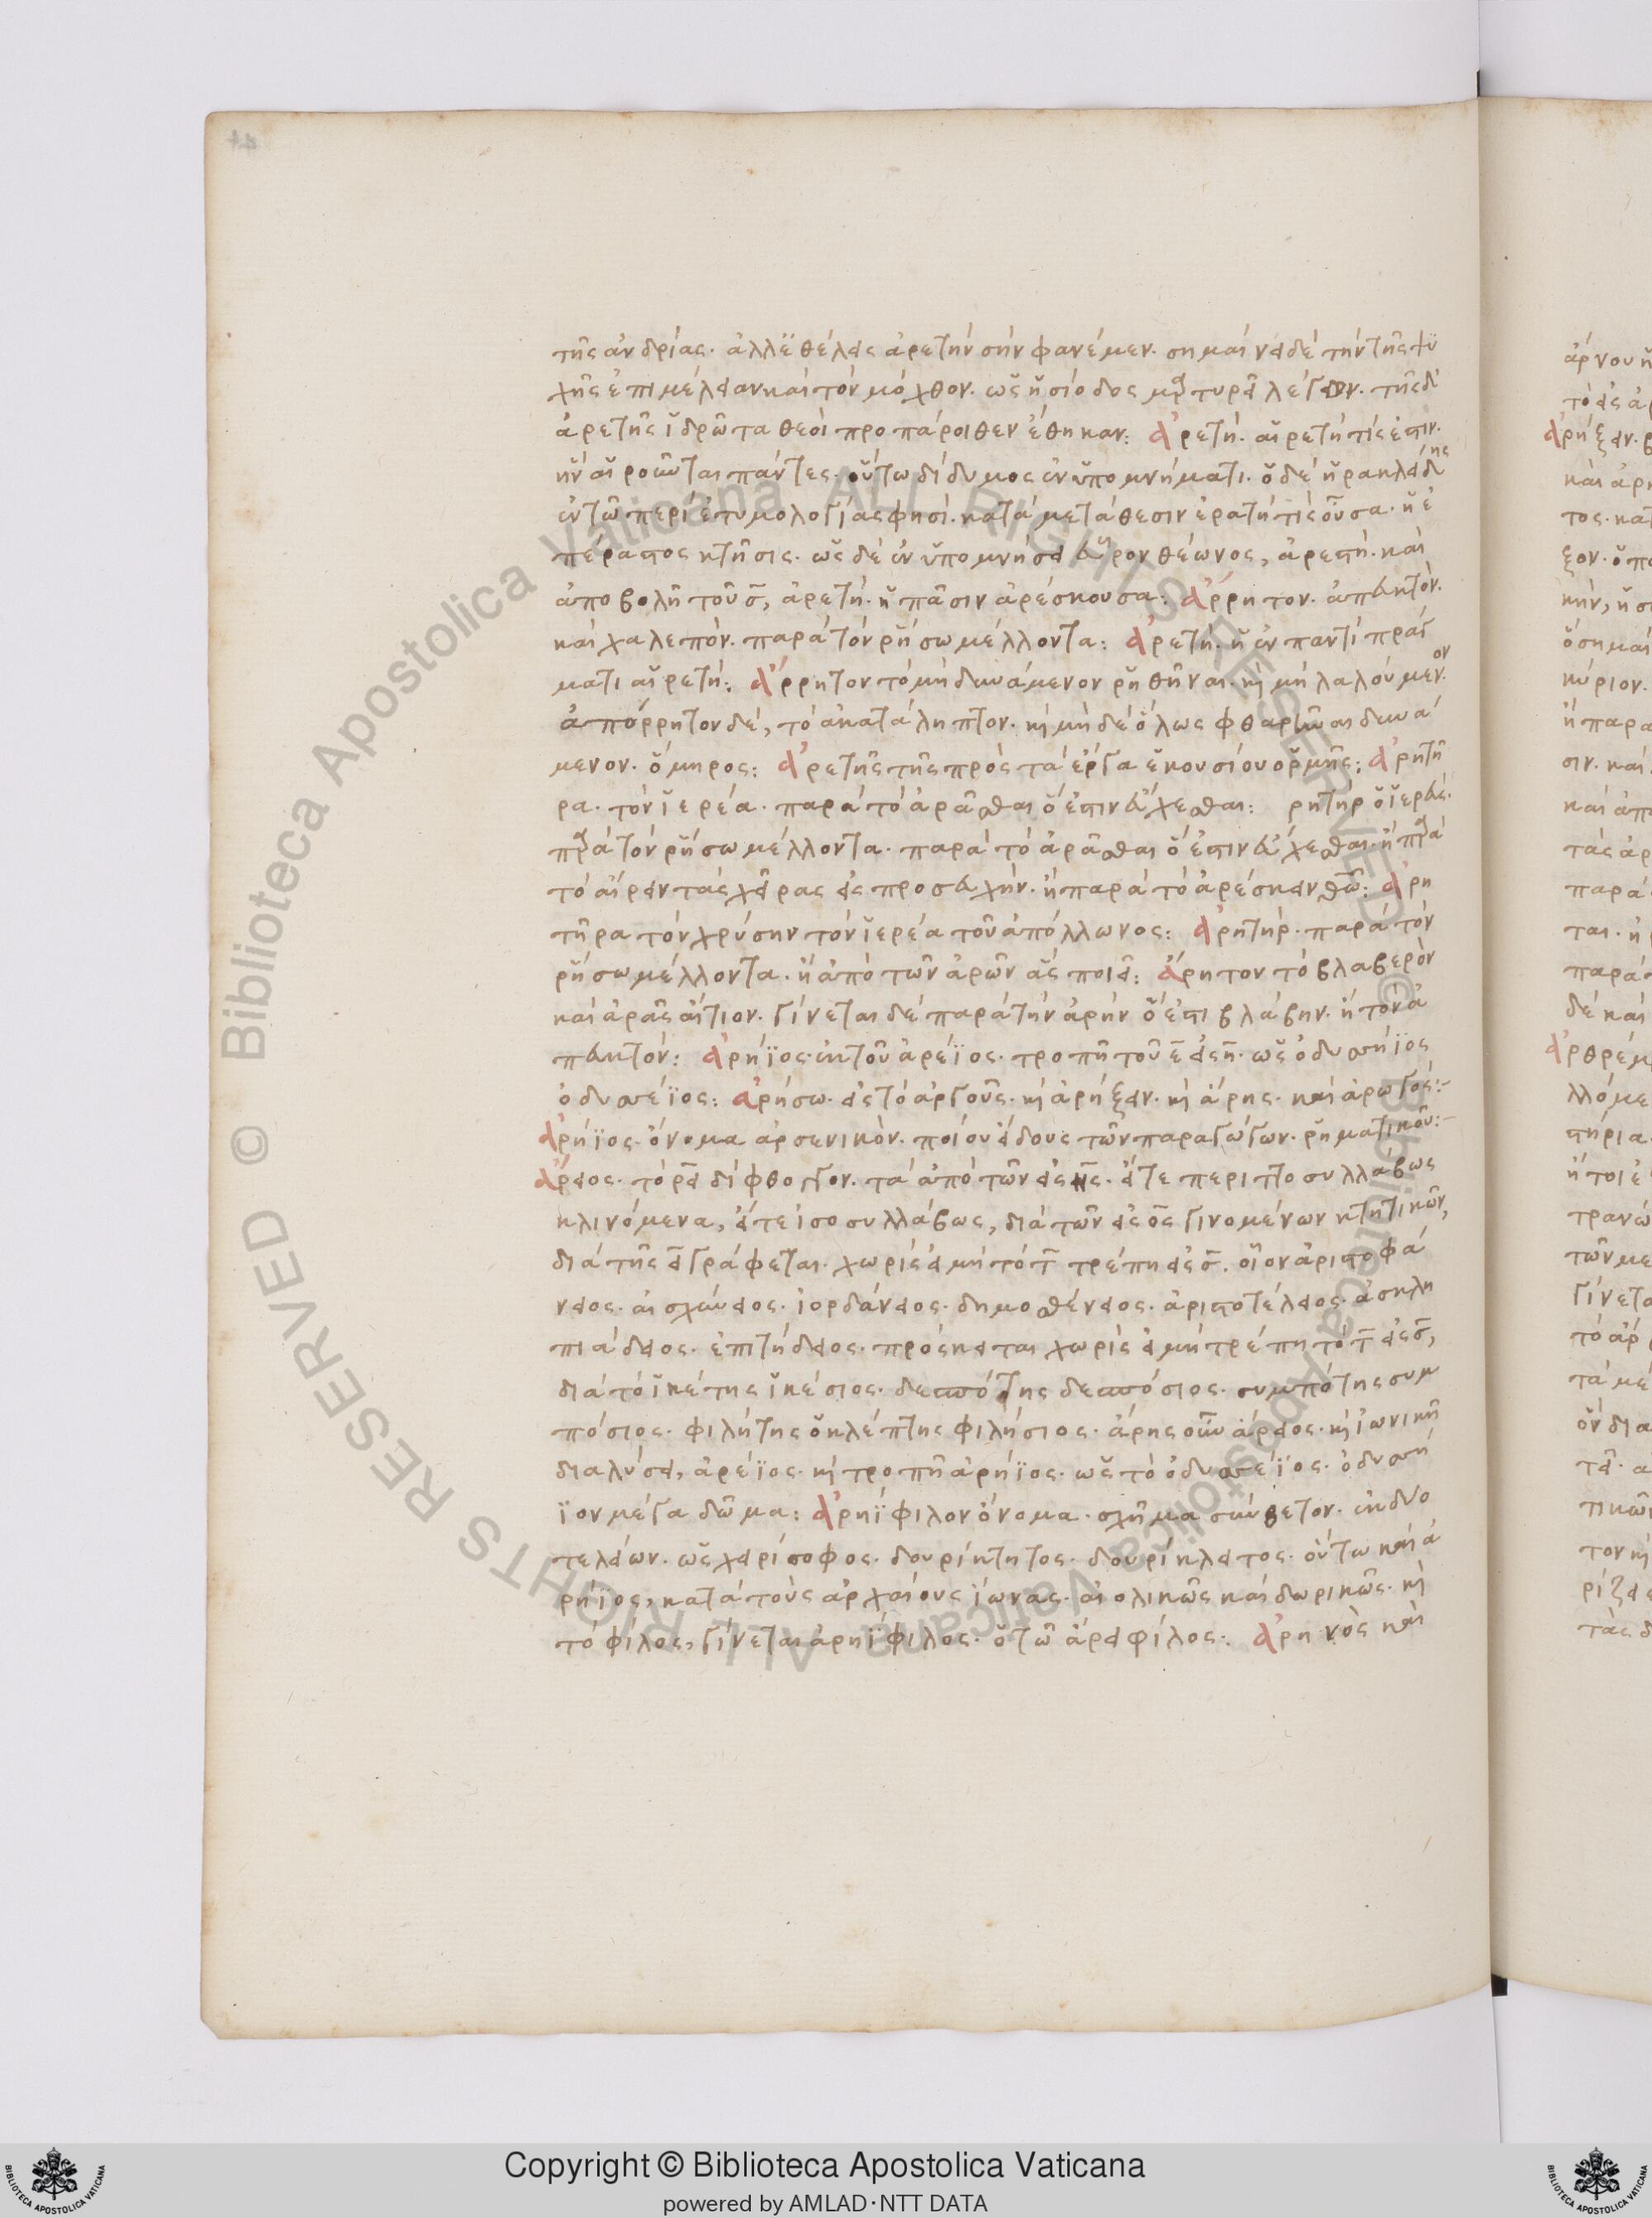 τῆς ἀνδρίας· ἀλλ' εἰ θέλεις ἀρετὴν σὴν φανέμεν· σημαίνει δὲ τὴν τῆς ψυ
χῆς ἐπιμέλειαν καὶ τὸν μόχθον· ὡς ἡσίοδος μαρτυρεῖ λέγων· τῆς δ'
ἀρετῆς ἱδρῶτα θεοὶ προπάροιθεν ἔθηκαν: ἀρετή· αἱρετή τίς ἐστιν·
ἣν αἱροῦνται πάντες· οὕτω δίδυμος ἐν ὑπομνήματι· ὁ δὲ ἡρακλείδης
ἐν τῷ περὶ ἐτυμολογίας φησί· κατὰ μετάθεσιν ἐρατή τις οὖσα· ἢ ἐ
πέραστος κτῆσις· ὡς δὲ ἐν ὑπομνήσει εὗρον θέωνος, ἀρεστή· καὶ
ἀποβολῇ τοῦ σ, ἀρετή· ἡ πᾶσιν ἀρέσκουσα: ἄρρητον· ἀπευκτόν·
καὶ χαλεπόν· παρὰ τὸν ῥήσω μέλλοντα: ἀρετή· ἡ ἐν παντὶ πράγ
ματι αἱρετή: ἄρρητον τὸ μὴ δυνάμενον ῥηθῆναι· καὶ μὴ λαλούμενον·
ἀπόρρητον δέ, τὸ ἀκατάληπτον· καὶ μηδὲ ὅλως φθαρῆναι δυνά
μενον· ὅμηρος: ἀρετῆς τῆς πρὸς τὰ ἔργα ἑκουσίου ὁρμῆς: ἀρητῆ
ρα· τὸν ἱερέα· παρὰ τὸ ἀρᾶσθαι ὅ ἐστιν εὔχεσθαι: ρητὴρ ὁ ἱερεύς·
παρὰ τὸν ῥήσω μέλλοντα· παρὰ τὸ ἀρᾶσθαι ὅ ἐστιν εὔχεσθαι· ἢ παρὰ
τὸ αἴρειν τὰς χεῖρας εἰς προσευχήν· ἢ παρὰ τὸ ἀρέσκειν θεῷ: ἀρη
τῆρα τὸν χρύσην τὸν ἱερέα τοῦ ἀπόλλωνος: ἀρητήρ· παρὰ τὸν
ῥήσω μέλλοντα· ἢ ἀπὸ τῶν ἀρῶν ἃς ποιεῖ: ἄρητον τὸ βλαβερὸν
καὶ ἀρᾶς αἴτιον· γίνεται δὲ παρὰ τὴν ἀρήν ὅ ἐστι βλάβην· ἢ τὸν ἀ
πευκτόν: ἀρήϊος· ἐκ τοῦ ἀρέϊος· τροπῇ τοῦ ε εἰς η· ὡς ὀδυσσήϊος
ὀδυσσέϊος: ἀρήσω· εἰς τὸ ἀργούς· καὶ ἀρήξειν· καὶ ἄρης· καὶ ἀρωγός:-
ἀρήϊος· ὄνομα ἀρσενικόν· ποίου εἴδους τῶν παραγώγων· ῥηματικοῦ:-
ἄρειος· τὸ ρει δίφθογγον· τὰ ἀπὸ τῶν εἰς ης· εἴτε περιττοσυλλάβως
κλινόμενα, εἴτε ἰσοσυλλάβως, διὰ τῶν εἰς ος γινομένων κτητικῶν,
διὰ τῆς ει γράφεται· χωρὶς εἰ μὴ τὸ τ τρέπῃ εἰς σ· οἷον ἀριστοφά
νειος· αἰσχίνειος· ἰορδάνειος· δημοσθένειος· ἀριστοτέλειος· ἀσκλη
πιάδειος· ἐπιτήδειος· πρόσκειται χωρὶς εἰ μὴ τρέπῃ τὸ τ εἰς σ,
διὰ τὸ ἱκέτης ἱκέσιος· δεσπότης δεσπόσιος· συμπότης συμ
πόσιος· φιλήτης ὁ κλέπτης φιλήσιος· ἄρης οὖν ἄρειος· καὶ ἰωνικῇ
διαλύσει, ἀρέϊος· καὶ τροπῇ ἀρήϊος· ὡς τὸ ὀδυσσέϊος· ὀδυσσή
ϊον μέγα δῶμα: ἀρηΐφιλον ὄνομα· σχῆμα σύνθετον· ἐκ δύο
τελείων· ὡς χειρίσοφος· δουρίκτητος· δουρίκλειτος· οὕτω καὶ ἀ
ρήϊος, κατὰ τοὺς ἀρχαίους ἴωνας· αἰολικῶς καὶ δωρικῶς· καὶ
τὸ φίλος, γίνεται ἀρηΐφιλος· ὁ τῷ ἄρει φίλος: ἀρηνὸς καὶ
Copyright © Biblioteca Apostolica Vaticana
powered by AMLAD·NTT DATA